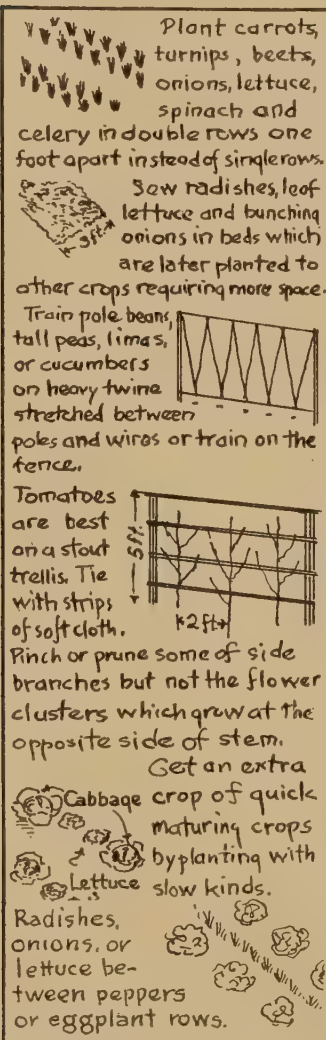 Plant carrots,
turnips, beets,
onions, lettuce,
spinach and
celery in double rows one
foot apart instead of single rows.
Sow radishes, leaf
lettuce and bunching
onions in beds which
are later planted to
other crops requiring more space.
3ft
Train pole beans,
tall peas, limas,
or cucumbers
on heavy twine
stretched between
poles and wires or train on the
fence.
Tomatoes
are best
on a stout
trellis. Tie
with strips
of soft cloth.
5ft.
2ft
Pinch or prune some of side
branches but not the flower
clusters which grow at the
opposite side of stem.
Get an extra
crop of quick
maturing crops
by planting with
slow kinds.
Cabbage
Lettuce
Radishes,
onions, or
lettuce be-
tween peppers
or eggplant rows.